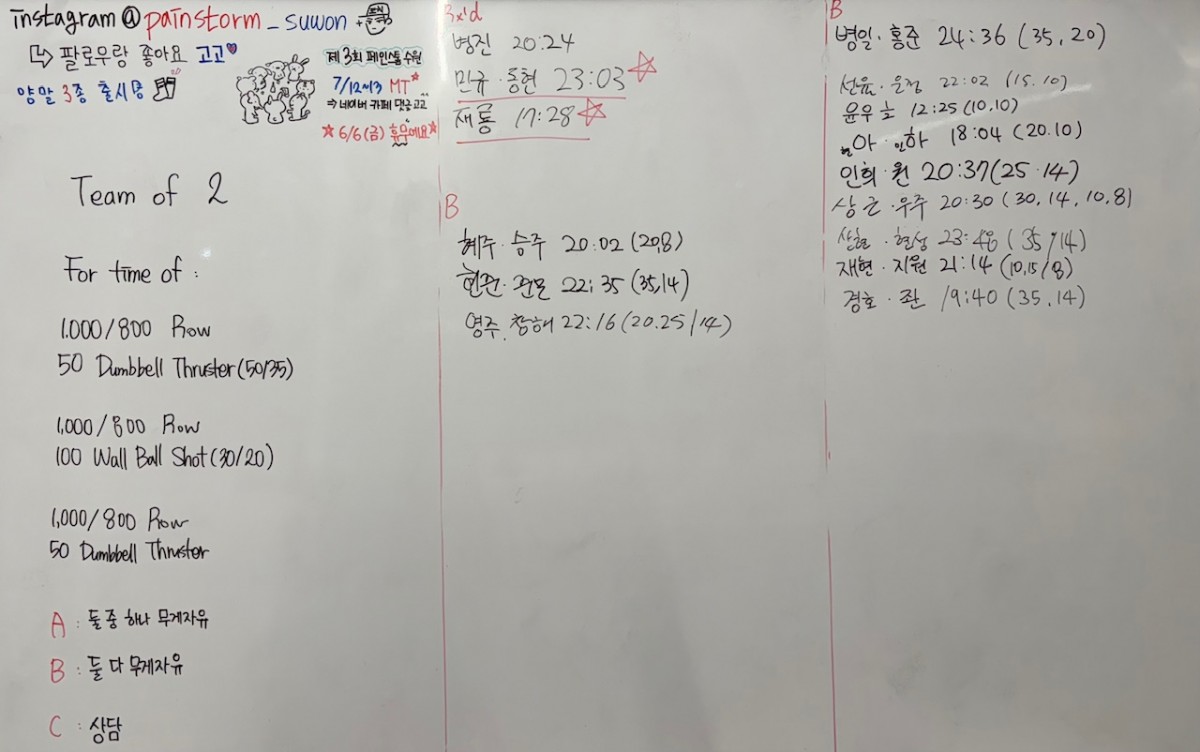 instagram @ painstorm_suwon +
↳ 팔로우랑 좋아요 고고♥
양말 3종 출시
제 3회 페인스톰 수원
7/12~13 MT*
⇒ 네이버 카페 댓글 고고
★ 6/6(금) 휴무에요 ★
Team of 2
For time of :
1.000/800 Row
50 Dumbbell Thruster (50/35)
1,000/800 Row
100 Wall Ball Shot (30/20)
1,000/800 Row
50 Dumbbell Thruster
A : 둘 중 하나 무게자유
B : 둘 다 무게자유
C : 상담
Rx'd
병진 20:24
민규·동현 23:03 ☆
재룡 17:28 ☆
B
혜주·승주 20:02 (20,8)
22:35 (35,14)
영주. 창해 22:16 (20.25/14)
B
병일·홍준 24:36 (35,20)
선윤·윤정 22:02 (15.10)
윤우호 12:25 (10,10)
18:04 (20.10)
인희·원 20:37 (25·14)
상근·우주 20:30 (30,14,10,8)
상현·현성 23:48 (35/14)
재현·지원 21:14 (10,15/8)
경호·좌 19:40 (35.14)